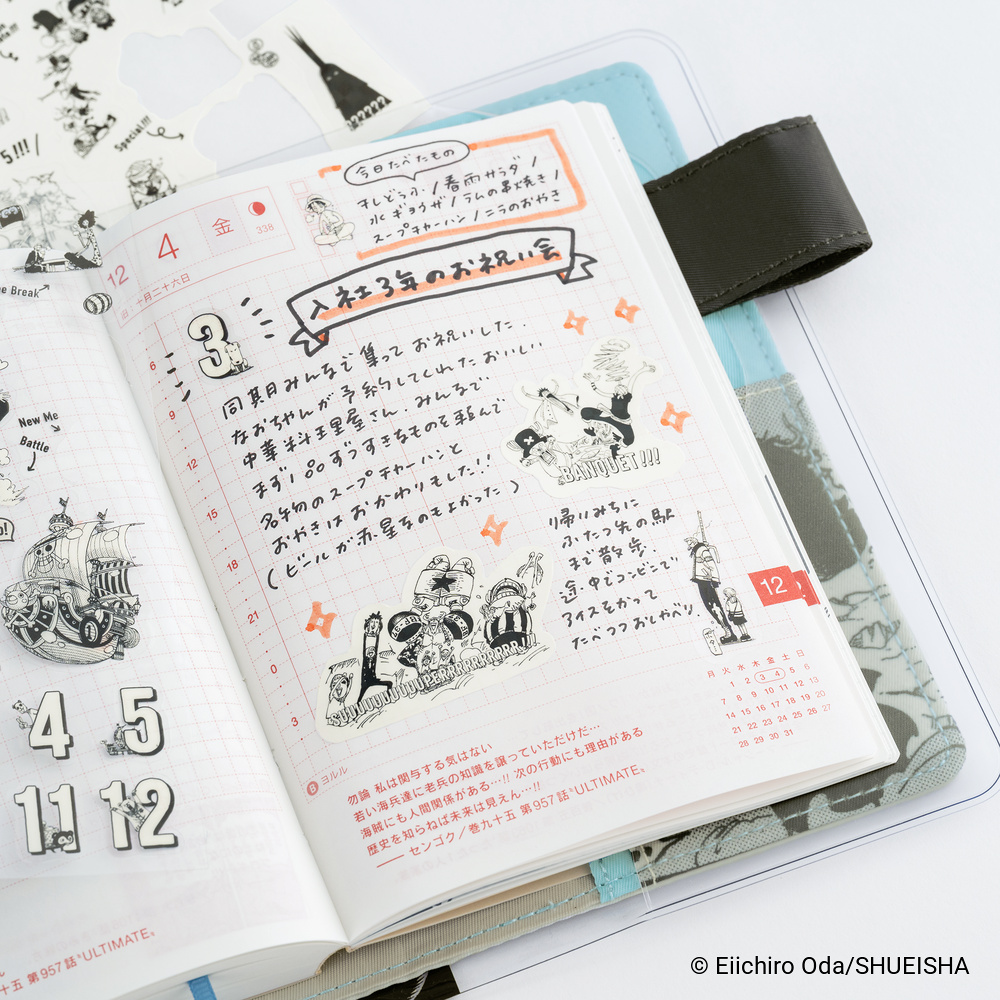 5!!!/
Special!!!
??????
e Break
New Me
Battle
4
5
11
12
五 第957話 "ULTIMATE"
12
4
金
338
旧 十月二十六日
今日たべたもの
すしどうふ/春雨サラダ/
水ギョウザ/ラムの串焼き/
スープチャーハン/ニラのおやき
入社3年のお祝い会
3
同期みんなで集って お祝いした.
なおちゃんが予約してくれたおいしい
中華料理屋さん. みんなで
まず1品ずつすきなものを頼んで
名物のスープチャーハンと
おやきはおかわりもした!!
(ビールが赤星なのもよかった)
BANQUET!!!
帰りみちに
ふたつ先の駅
まで散歩.
途中でコンビニで
アイスをかって
たべつつおしゃべり.
SUUUUUUUUUPERRRRRRRRR!!!
6
9
12
15
18
21
0
3
12
月 火 水 木 金 土 日
1 2 3 4 5 6
7 8 9 10 11 12 13
14 15 16 17 18 19 20
21 22 23 24 25 26 27
28 29 30 31
B ヨルル
勿論 私は関与する気はない
若い海兵達に老兵の知識を譲っていただけだ…
海賊にも人間関係がある…!! 次の行動にも理由がある
歴史を知らねば未来は見えん…!!
── センゴク/巻九十五 第957話 "ULTIMATE"
© Eiichiro Oda/SHUEISHA